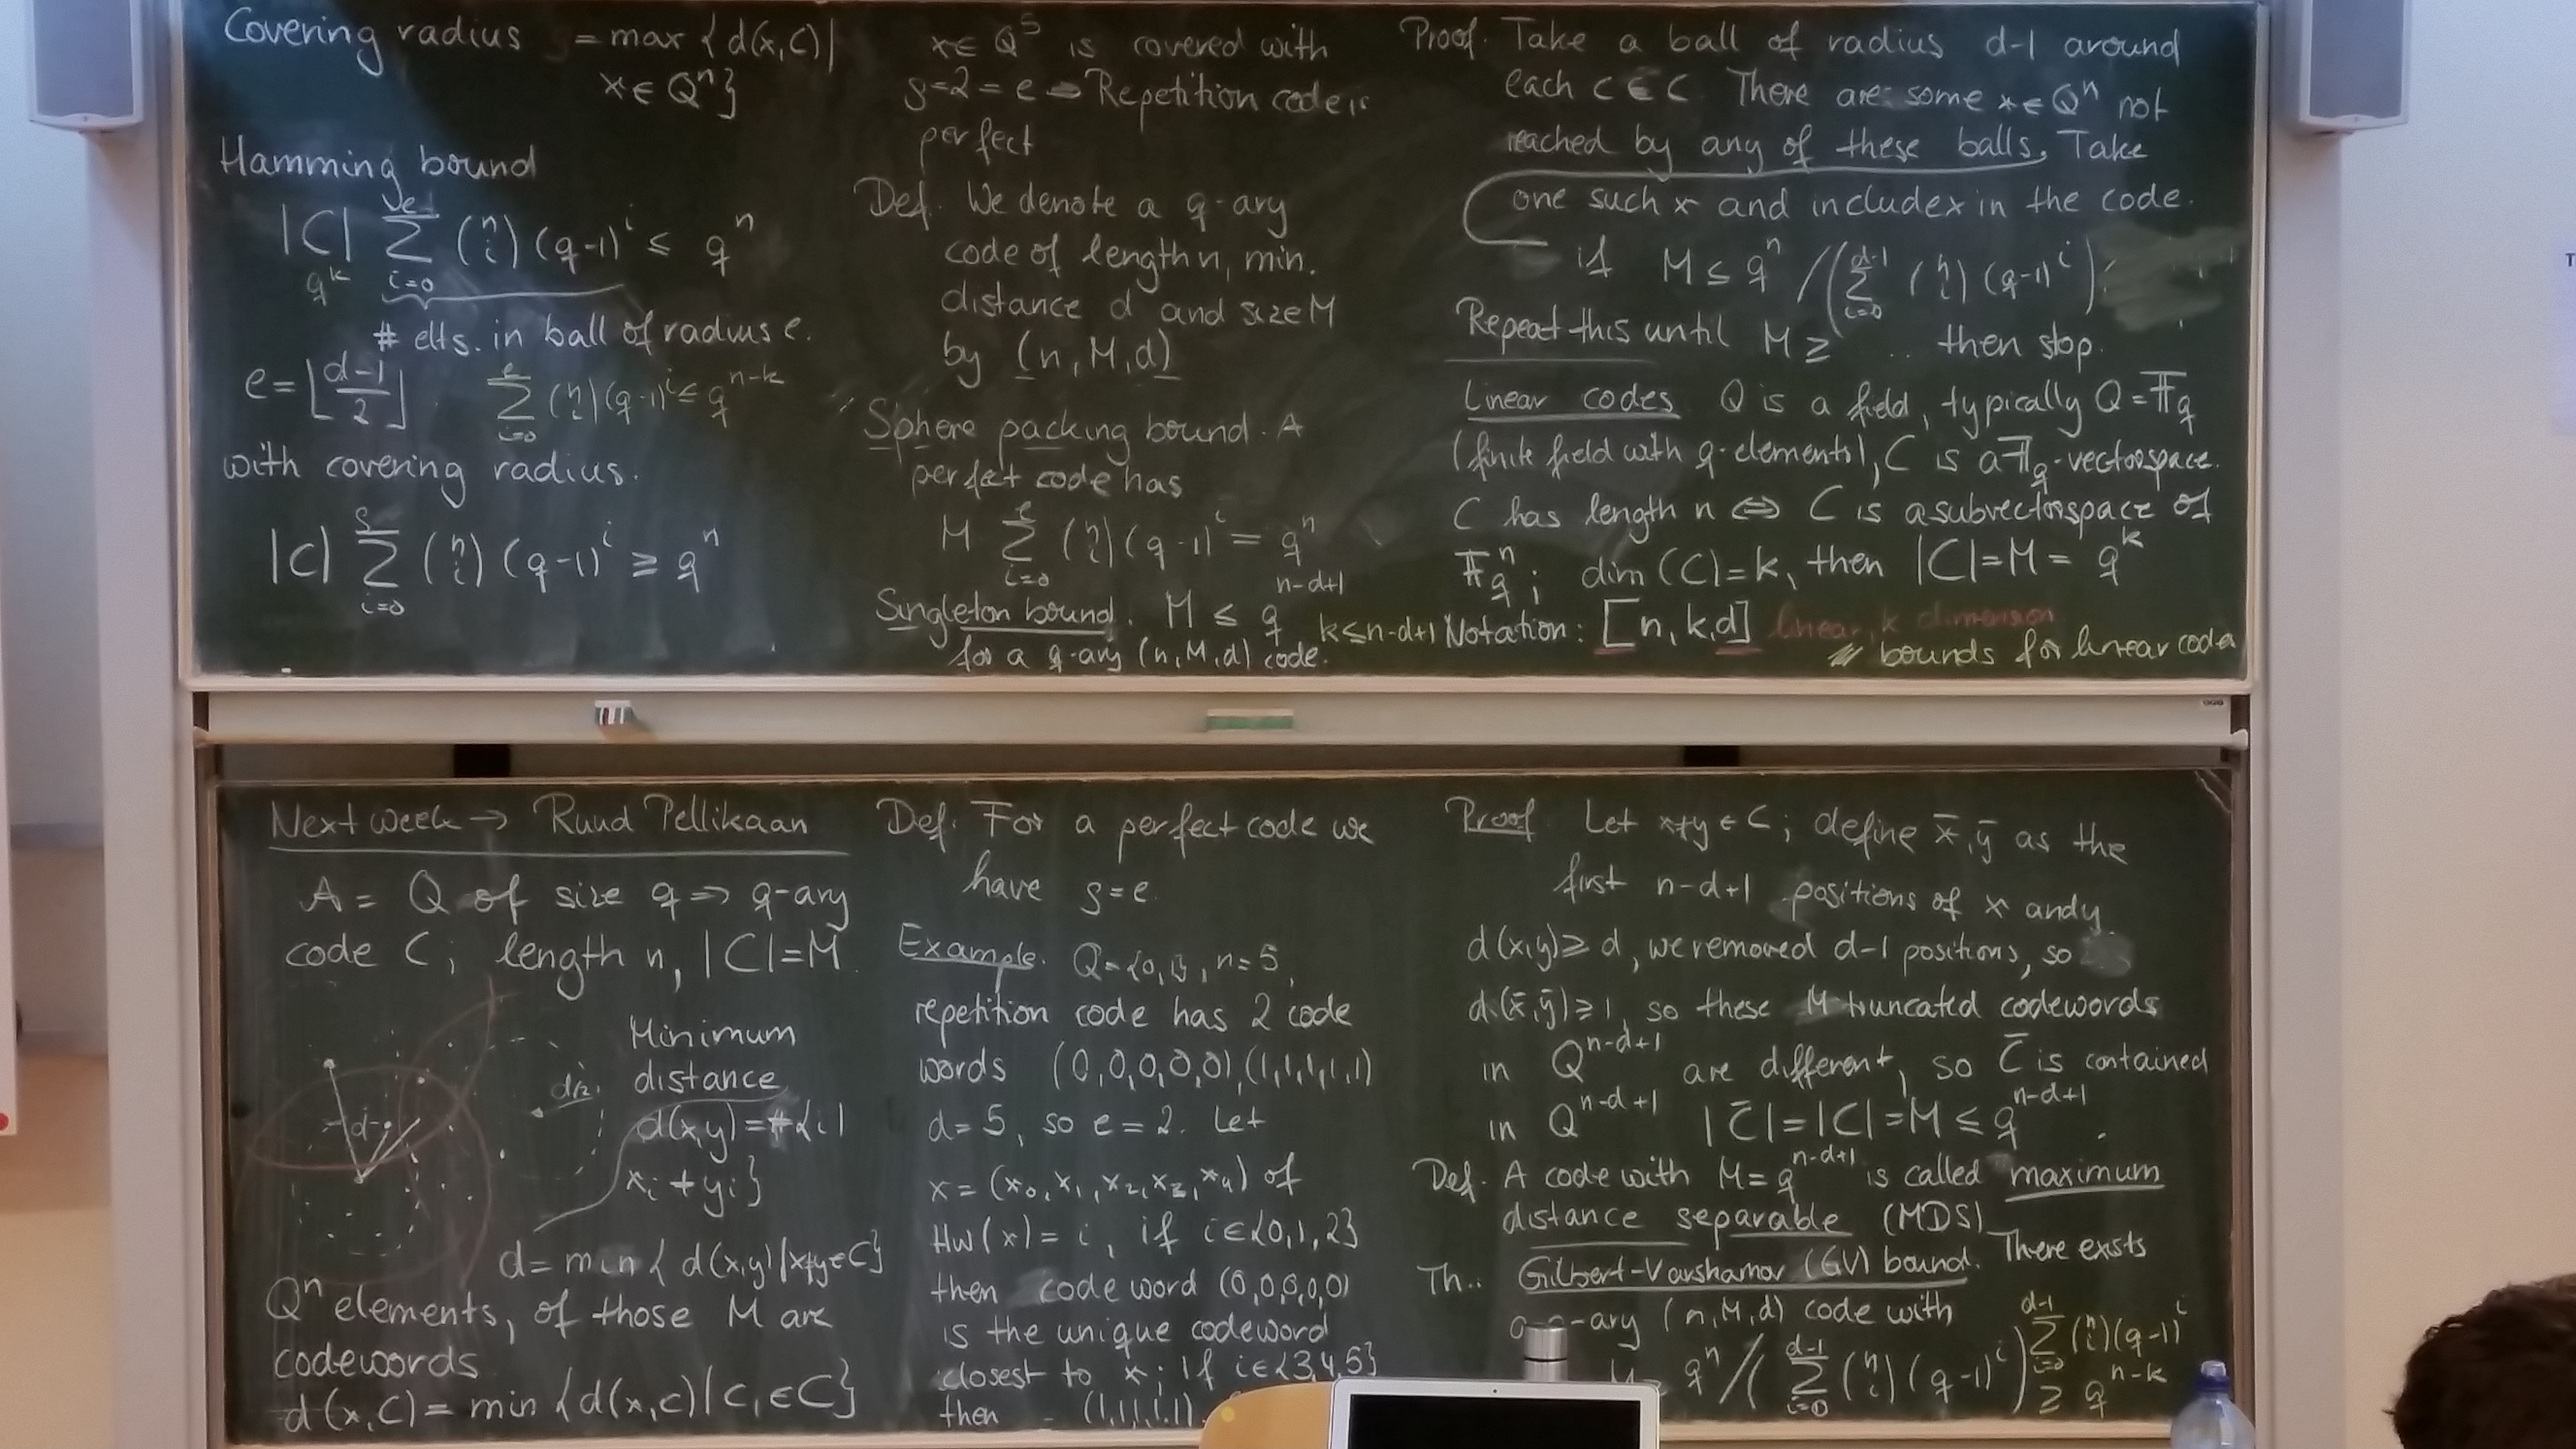 Covering radius = max { d(x,C) |
x ∈ Qⁿ}
Hamming bound
|C| ∑_{i=0}^{e} (n i) (q-1)^i ≤ qⁿ
q^k
# elts. in ball of radius e.
e = ⌊(d-1)/2⌋. ∑_{i=0}^{e} (n i) (q-1)^i ≤ q^{n-k}
with covering radius.
|C| ∑_{i=0}^{ρ} (n i) (q-1)^i ≥ qⁿ
x ∈ Q⁵ is covered with
ρ=2=e ⇒ Repetition code is
perfect
Def. We denote a q-ary
code of length n, min.
distance d and size M
by (n, M, d)
Sphere packing bound. A
perfect code has
M ∑_{i=0}^{e} (n i) (q-1)^i = qⁿ
Singleton bound. M ≤ q^{n-d+1}
for a q-ary (n, M, d) code.
k≤n-d+1
Proof. Take a ball of radius d-1 around
each c ∈ C. There are some x ∈ Qⁿ not
reached by any of these balls. Take
one such x and include x in the code.
if M ≤ qⁿ / (∑_{i=0}^{d-1} (n i) (q-1)^i)
Repeat this until M ≥ .. then stop.
Linear codes Q is a field, typically Q = 𝔽_q
(finite field with q-elements), C is a 𝔽_q-vectorspace.
C has length n ⇔ C is a subvectorspace of
𝔽_qⁿ ; dim (C) = k, then |C| = M = q^k
Notation: [n, k, d] linear, k dimension
bounds for linear code
Next week → Ruud Pellikaan
A = Q of size q ⇒ q-ary
code C; length n, |C|=M.
Minimum
distance
d(x,y) = #{i|
x_i ≠ y_i}
d/2
d
d = min { d(x,y) | x≠y ∈ C}
Qⁿ elements, of those M are
codewords
d(x,C) = min {d(x,c) | c ∈ C}
Def. For a perfect code we
have ρ=e.
Example. Q={0,1}, n=5,
repetition code has 2 code
words (0,0,0,0,0), (1,1,1,1,1)
d=5, so e=2. Let
x = (x₀, x₁, x₂, x₃, x₄) of
Hw(x) = i, if i∈{0,1,2}
then code word (0,0,0,0,0)
is the unique codeword
closest to x; if i∈{3,4,5}
then - (1,1,1,1,1)
Proof Let x≠y ∈ C; define x̄, ȳ as the
first n-d+1 positions of x and y
d(x,y) ≥ d, we removed d-1 positions, so
d(x̄,ȳ) ≥ 1, so these M truncated codewords
in Q^{n-d+1} are different, so C̄ is contained
in Q^{n-d+1} |C̄| = |C| = M ≤ q^{n-d+1}.
Def. A code with M = q^{n-d+1} is called maximum
distance separable (MDS)
Th.. Gilbert-Varshamov (GV) bound. There exists
a q-ary (n, M, d) code with
qⁿ / (∑_{i=0}^{d-1} (n i) (q-1)^i)
∑_{i=0}^{d-1} (n i) (q-1)^i
≥ q^{n-k}